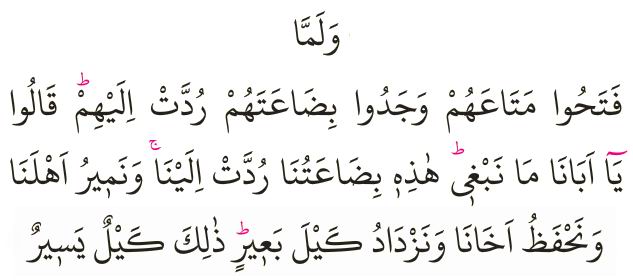 وَلَمَّا
فَتَحُوا مَتَاعَهُمْ وَجَدُوا بِضَاعَتَهُمْ رُدَّتْ اِلَيْهِمْۜ قَالُوا
يَٓا اَبَانَا مَا نَبْغ۪يۜ هٰذِه۪ بِضَاعَتُنَا رُدَّتْ اِلَيْنَاۚ وَنَم۪يرُ اَهْلَنَا
وَنَحْفَظُ اَخَانَا وَنَزْدَادُ كَيْلَ بَع۪يرٍۜ ذٰلِكَ كَيْلٌ يَس۪يرٌ